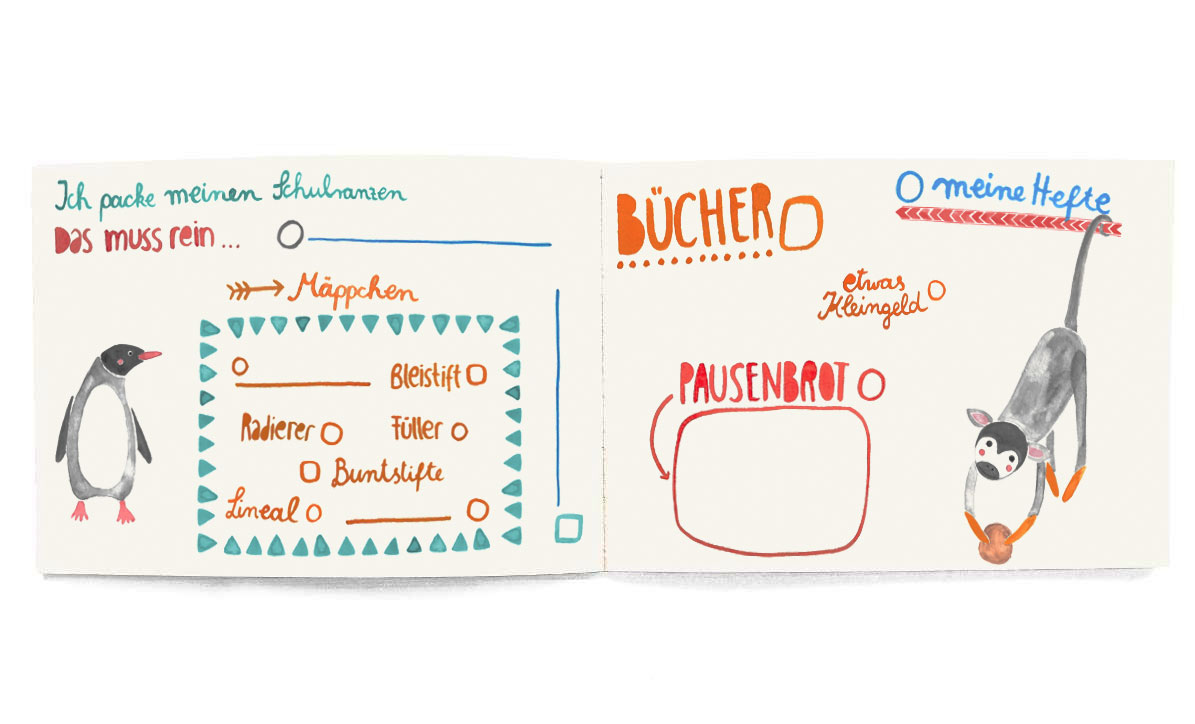 Ich packe meinen Schulranzen
Das muss rein...
Mäppchen
Bleistift
Radierer
Füller
Buntstifte
Lineal
BÜCHER
meine Hefte
etwas
Kleingeld
PAUSENBROT